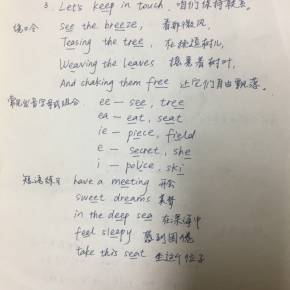 3. Let's keep in touch. 咱们保持联系.
绕口令 See the breeze, 看那微风,
Teasing the tree, 在挑逗树儿,
Weaving the leaves 摇晃着树叶,
And shaking them free 让它们自由飘落.
常见发音字母或组合 ee — see, tree
ea — eat, seat
ie — piece, field
e — secret, she
i — police, ski
短语练习 have a meeting 开会
sweet dreams 美梦
in the deep sea 在深海中
feel sleepy 感到困倦
take this seat 坐这个位子